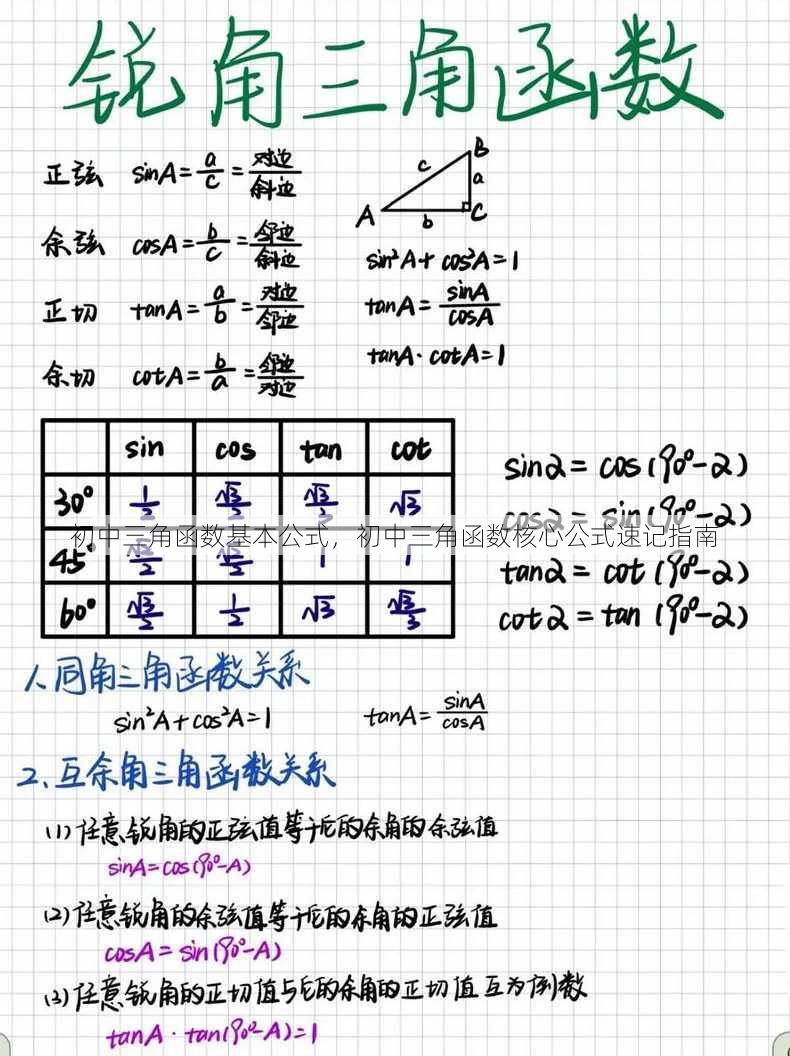 锐角三角函数
正弦 sinA=a/c=对边/斜边
余弦 cosA=b/c=邻边/斜边
正切 tanA=a/b=对边/邻边
余切 cotA=b/a=邻边/对边
A B C a b c
sin²A+cos²A=1
tanA=sinA/cosA
tanA·cotA=1
sin cos tan cot
30° 1/2 √3/2 √3/3 √3
45° √2/2 √2/2 1 1
60° √3/2 1/2 √3 √3/3
sin2=cos(90°-2)
cos2=sin(90°-2)
tan2=cot(90°-2)
cot2=tan(90°-2)
初中三角函数基本公式，初中三角函数核心公式速记指南
1、同角三角函数关系
sin²A+cos²A=1 tanA=sinA/cosA
2、互余角三角函数关系
(1)任意锐角的正弦值等于它的余角的余弦值
sinA=cos(90°-A)
(2)任意锐角的余弦值等于它的余角的正弦值
cosA=sin(90°-A)
(3)任意锐角的正切值与它的余角的正切值互为倒数
tanA·tan(90°-A)=1